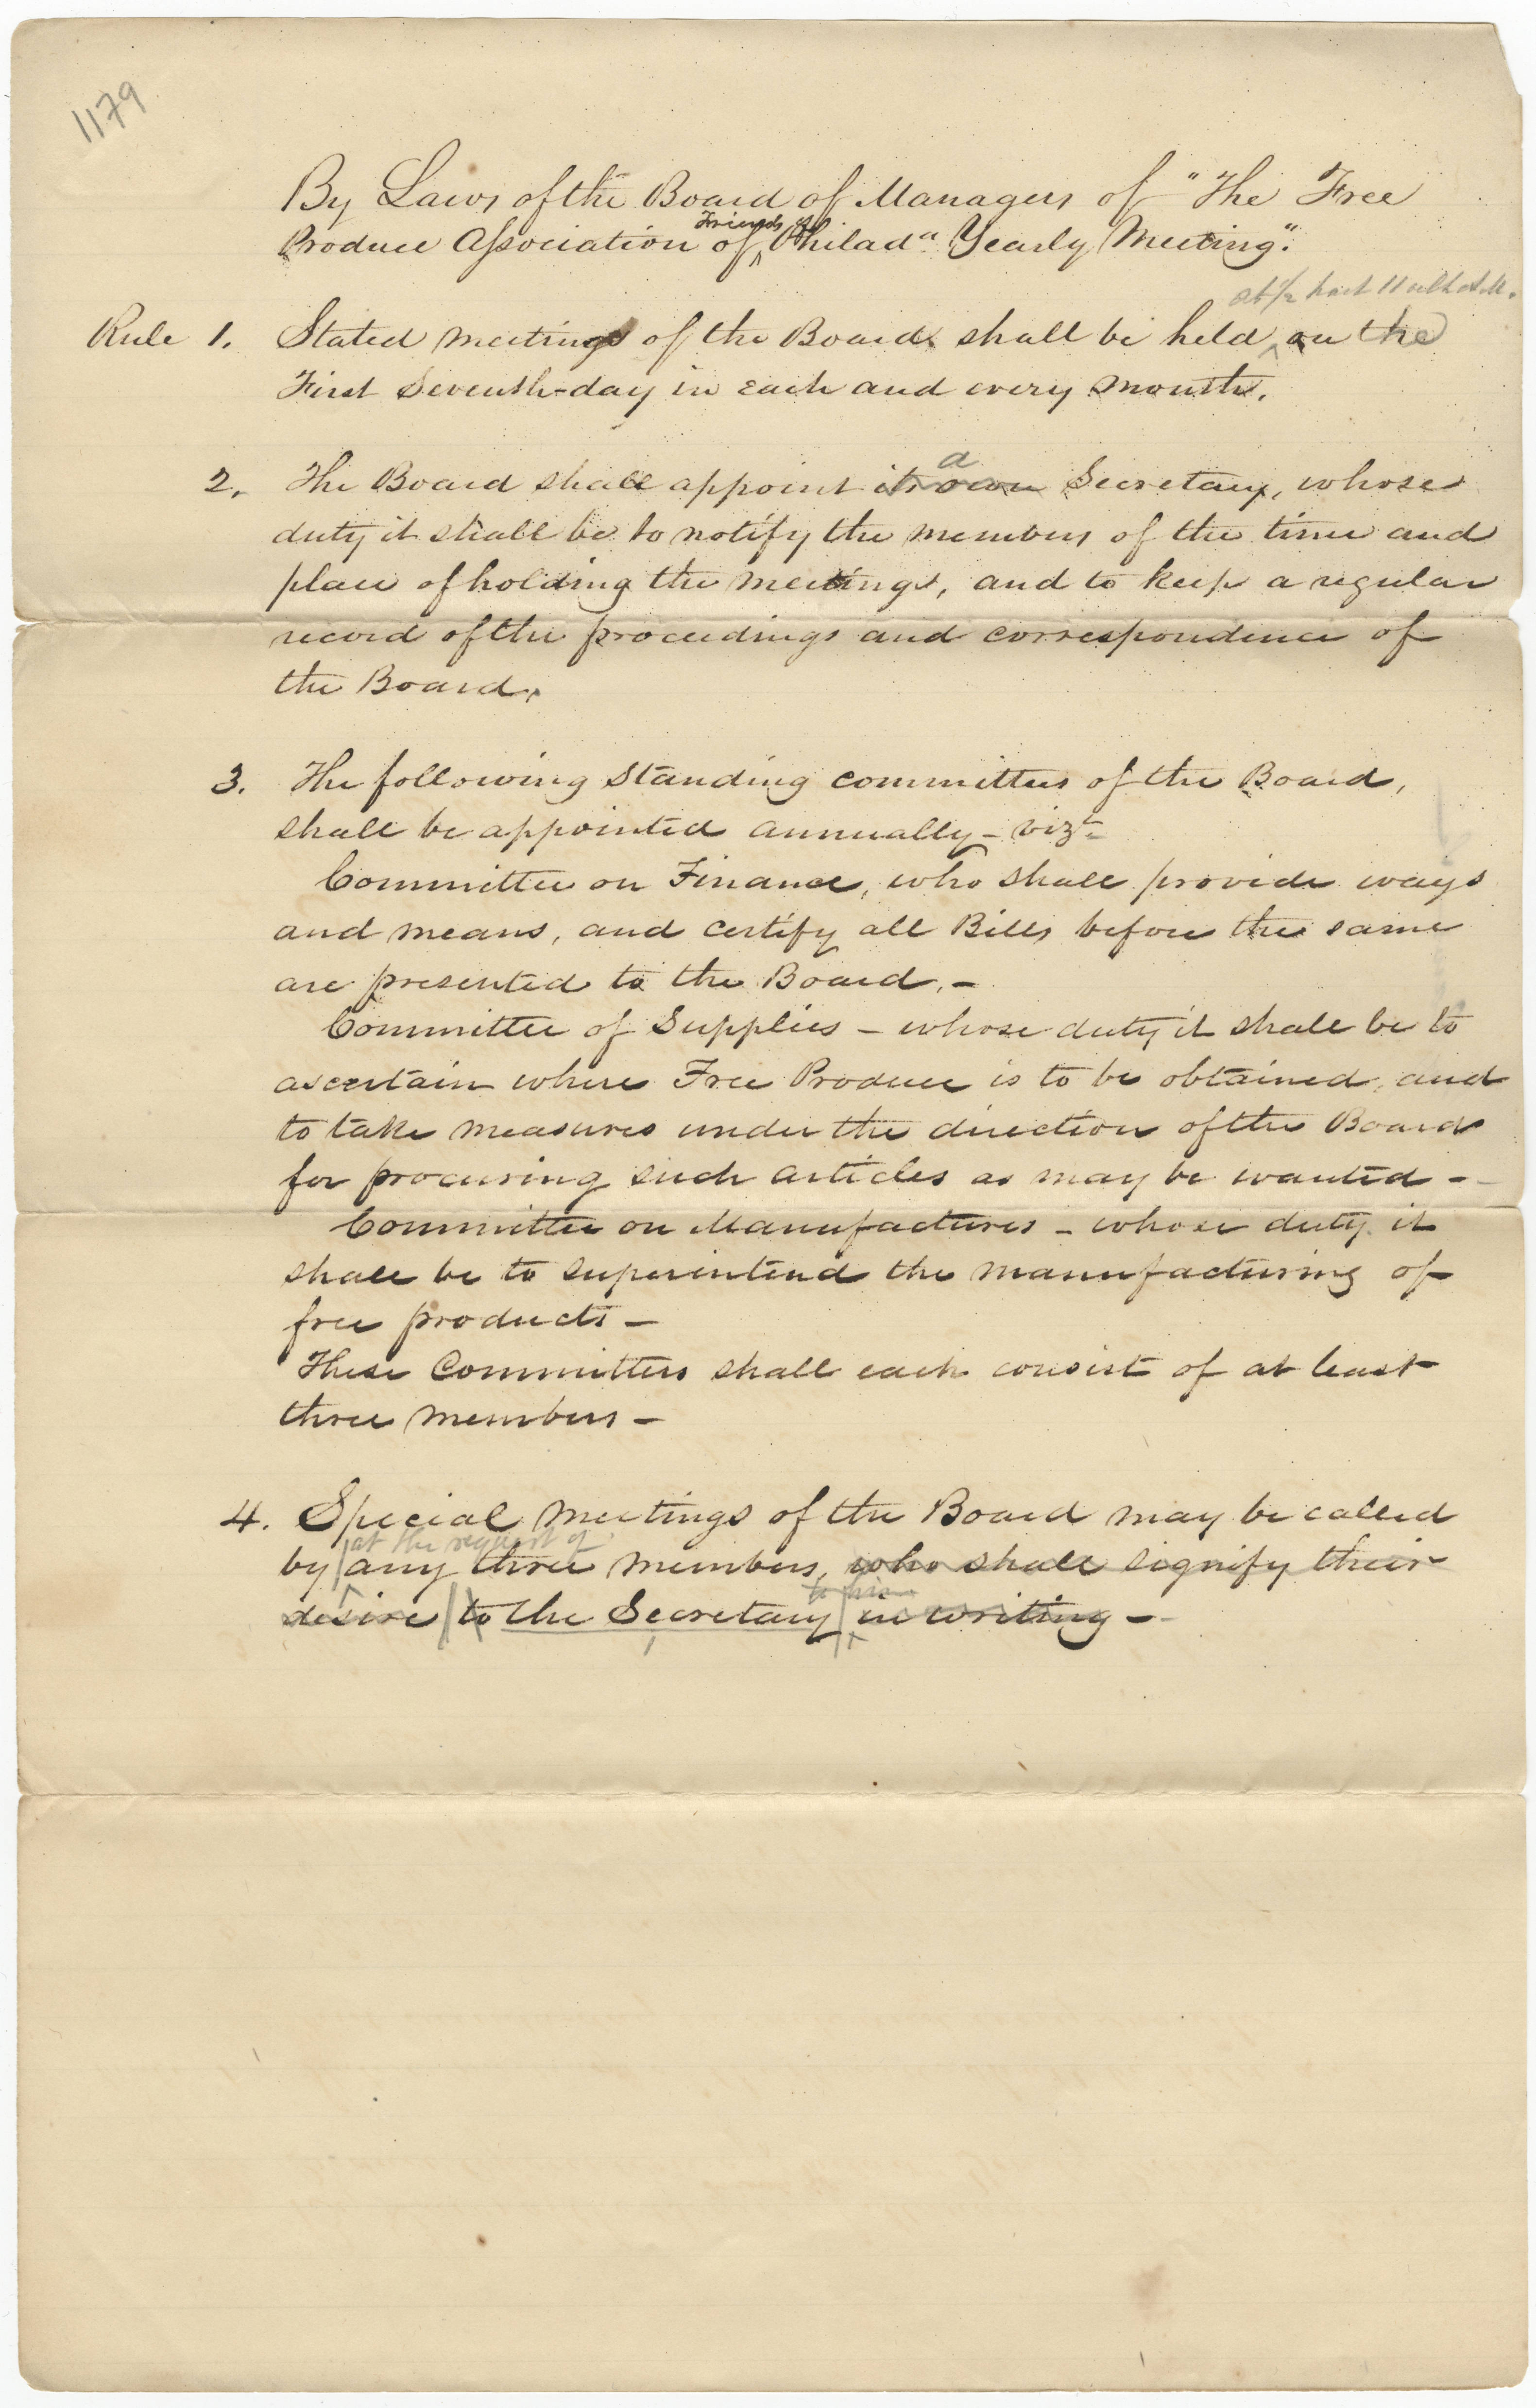 1179
By Laws of the Board of Managers of "The Free
Friends of
Produce Association of Philad.ª Yearly Meeting".
at ½ past 11 o'clk A.M.
Rule 1. Stated meetings of the Board shall be held on the
First Seventh-day in each and every month.
a
2. The Board shall appoint its own Secretary, whose
duty it shall be to notify the members of the time and
place of holding the meetings, and to keep a regular
record of the proceedings and correspondence of
the Board.
3. The following Standing committees of the Board,
shall be appointed annually - vizt-
Committee on Finance, who shall provide ways
and means, and certify all Bills before the same
are presented to the Board. -
Committee of Supplies - whose duty it shall be to
ascertain where Free Produce is to be obtained, and
to take measures under the direction of the Board
for procuring such articles as may be wanted -
Committee on Manufactures - whose duty it
shall be to superintend the manufacturing of
free products -
These Committees shall each consist of at least
three members -
4. Special meetings of the Board may be called
at the request of
by any three members, who shall signify their
to him
desire to the Secretary in writing -